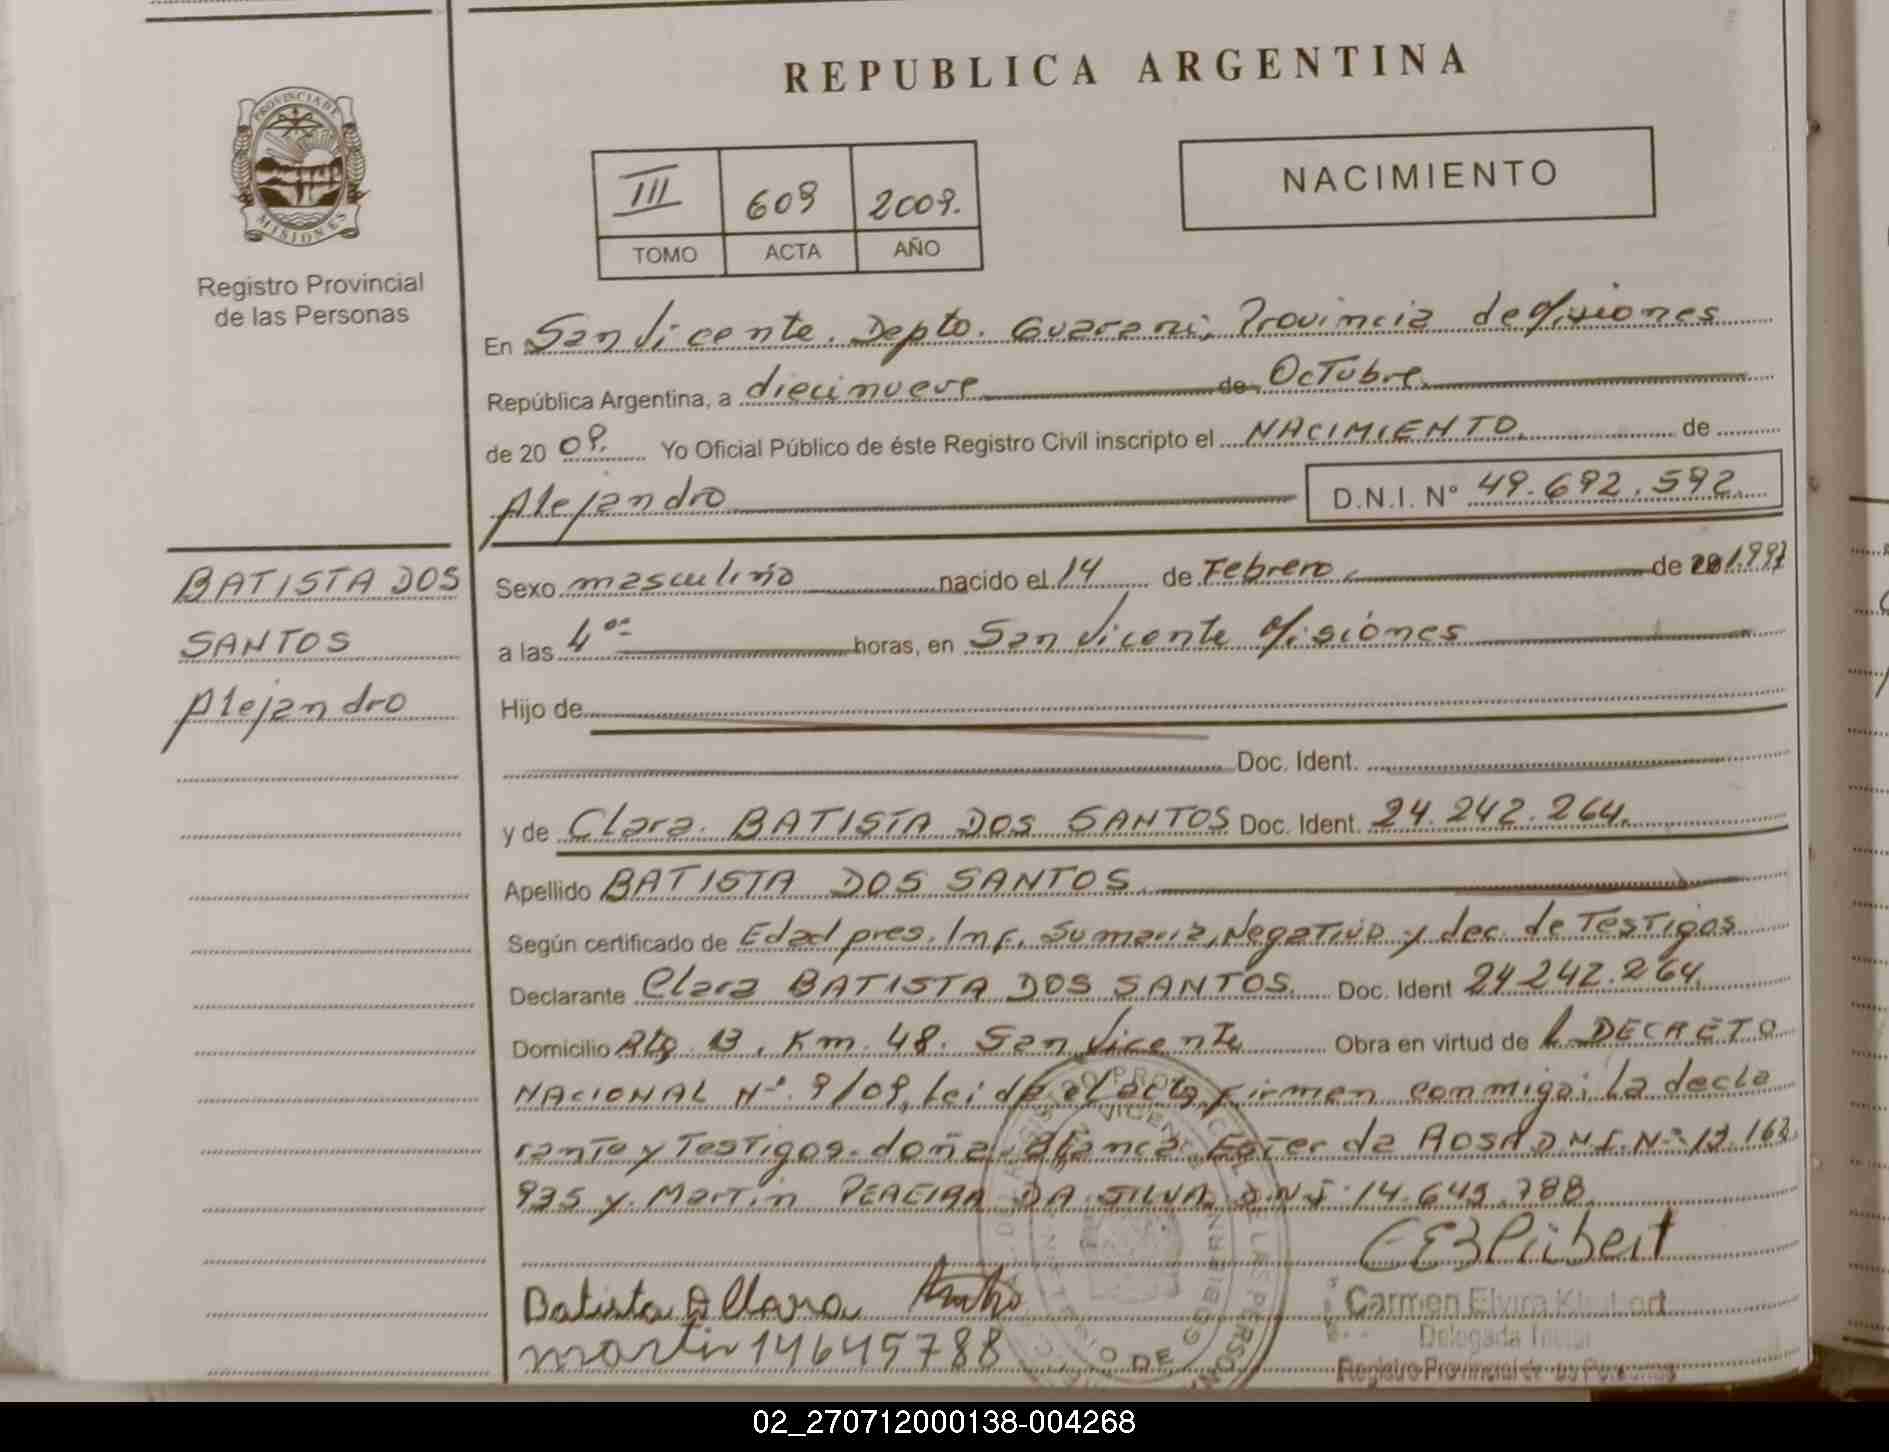 REPUBLICA ARGENTINA
PROVINCIA DE
MISIONES
Registro Provincial
de las Personas
III 609 2009.
TOMO ACTA AÑO
NACIMIENTO
En San Vicente. Depto. Guarani, Provincia de Misiones
República Argentina, a diecinueve de Octubre
de 20 09. Yo Oficial Público de éste Registro Civil inscripto el NACIMIENTO. de
Alejandro D.N.I. N° 49.692.592.
BATISTA DOS
SANTOS
Alejandro
Sexo masculino nacido el 14 de Febrero de 20 1.997
a las 4 oo horas, en San Vicente Misiones
Hijo de
Doc. Ident.
y de Clara. BATISTA DOS SANTOS Doc. Ident. 24.242.264.
Apellido BATISTA DOS SANTOS.
Según certificado de Edad pres. Inf. Sumaria, Negativo y dec. de Testigos
Declarante Clara BATISTA DOS SANTOS. Doc. Ident 24.242.264.
Domicilio Rta. 13. Km. 48. San Vicente Obra en virtud de L DECRETO
NACIONAL Nº. 9/09, Leida el acta, firman conmigo; la decla
rante y Testigos. doña. Blanca Ester da ROSA D.N.I. Nº 13.162
935 y. Martin PEREIRA DA SILVA, D.N.I. 14.645.788.
Batista Clara
martin 14645788
Carmen Elvira
Delegada Titular
Registro Provincial de las Personas
02_270712000138-004268